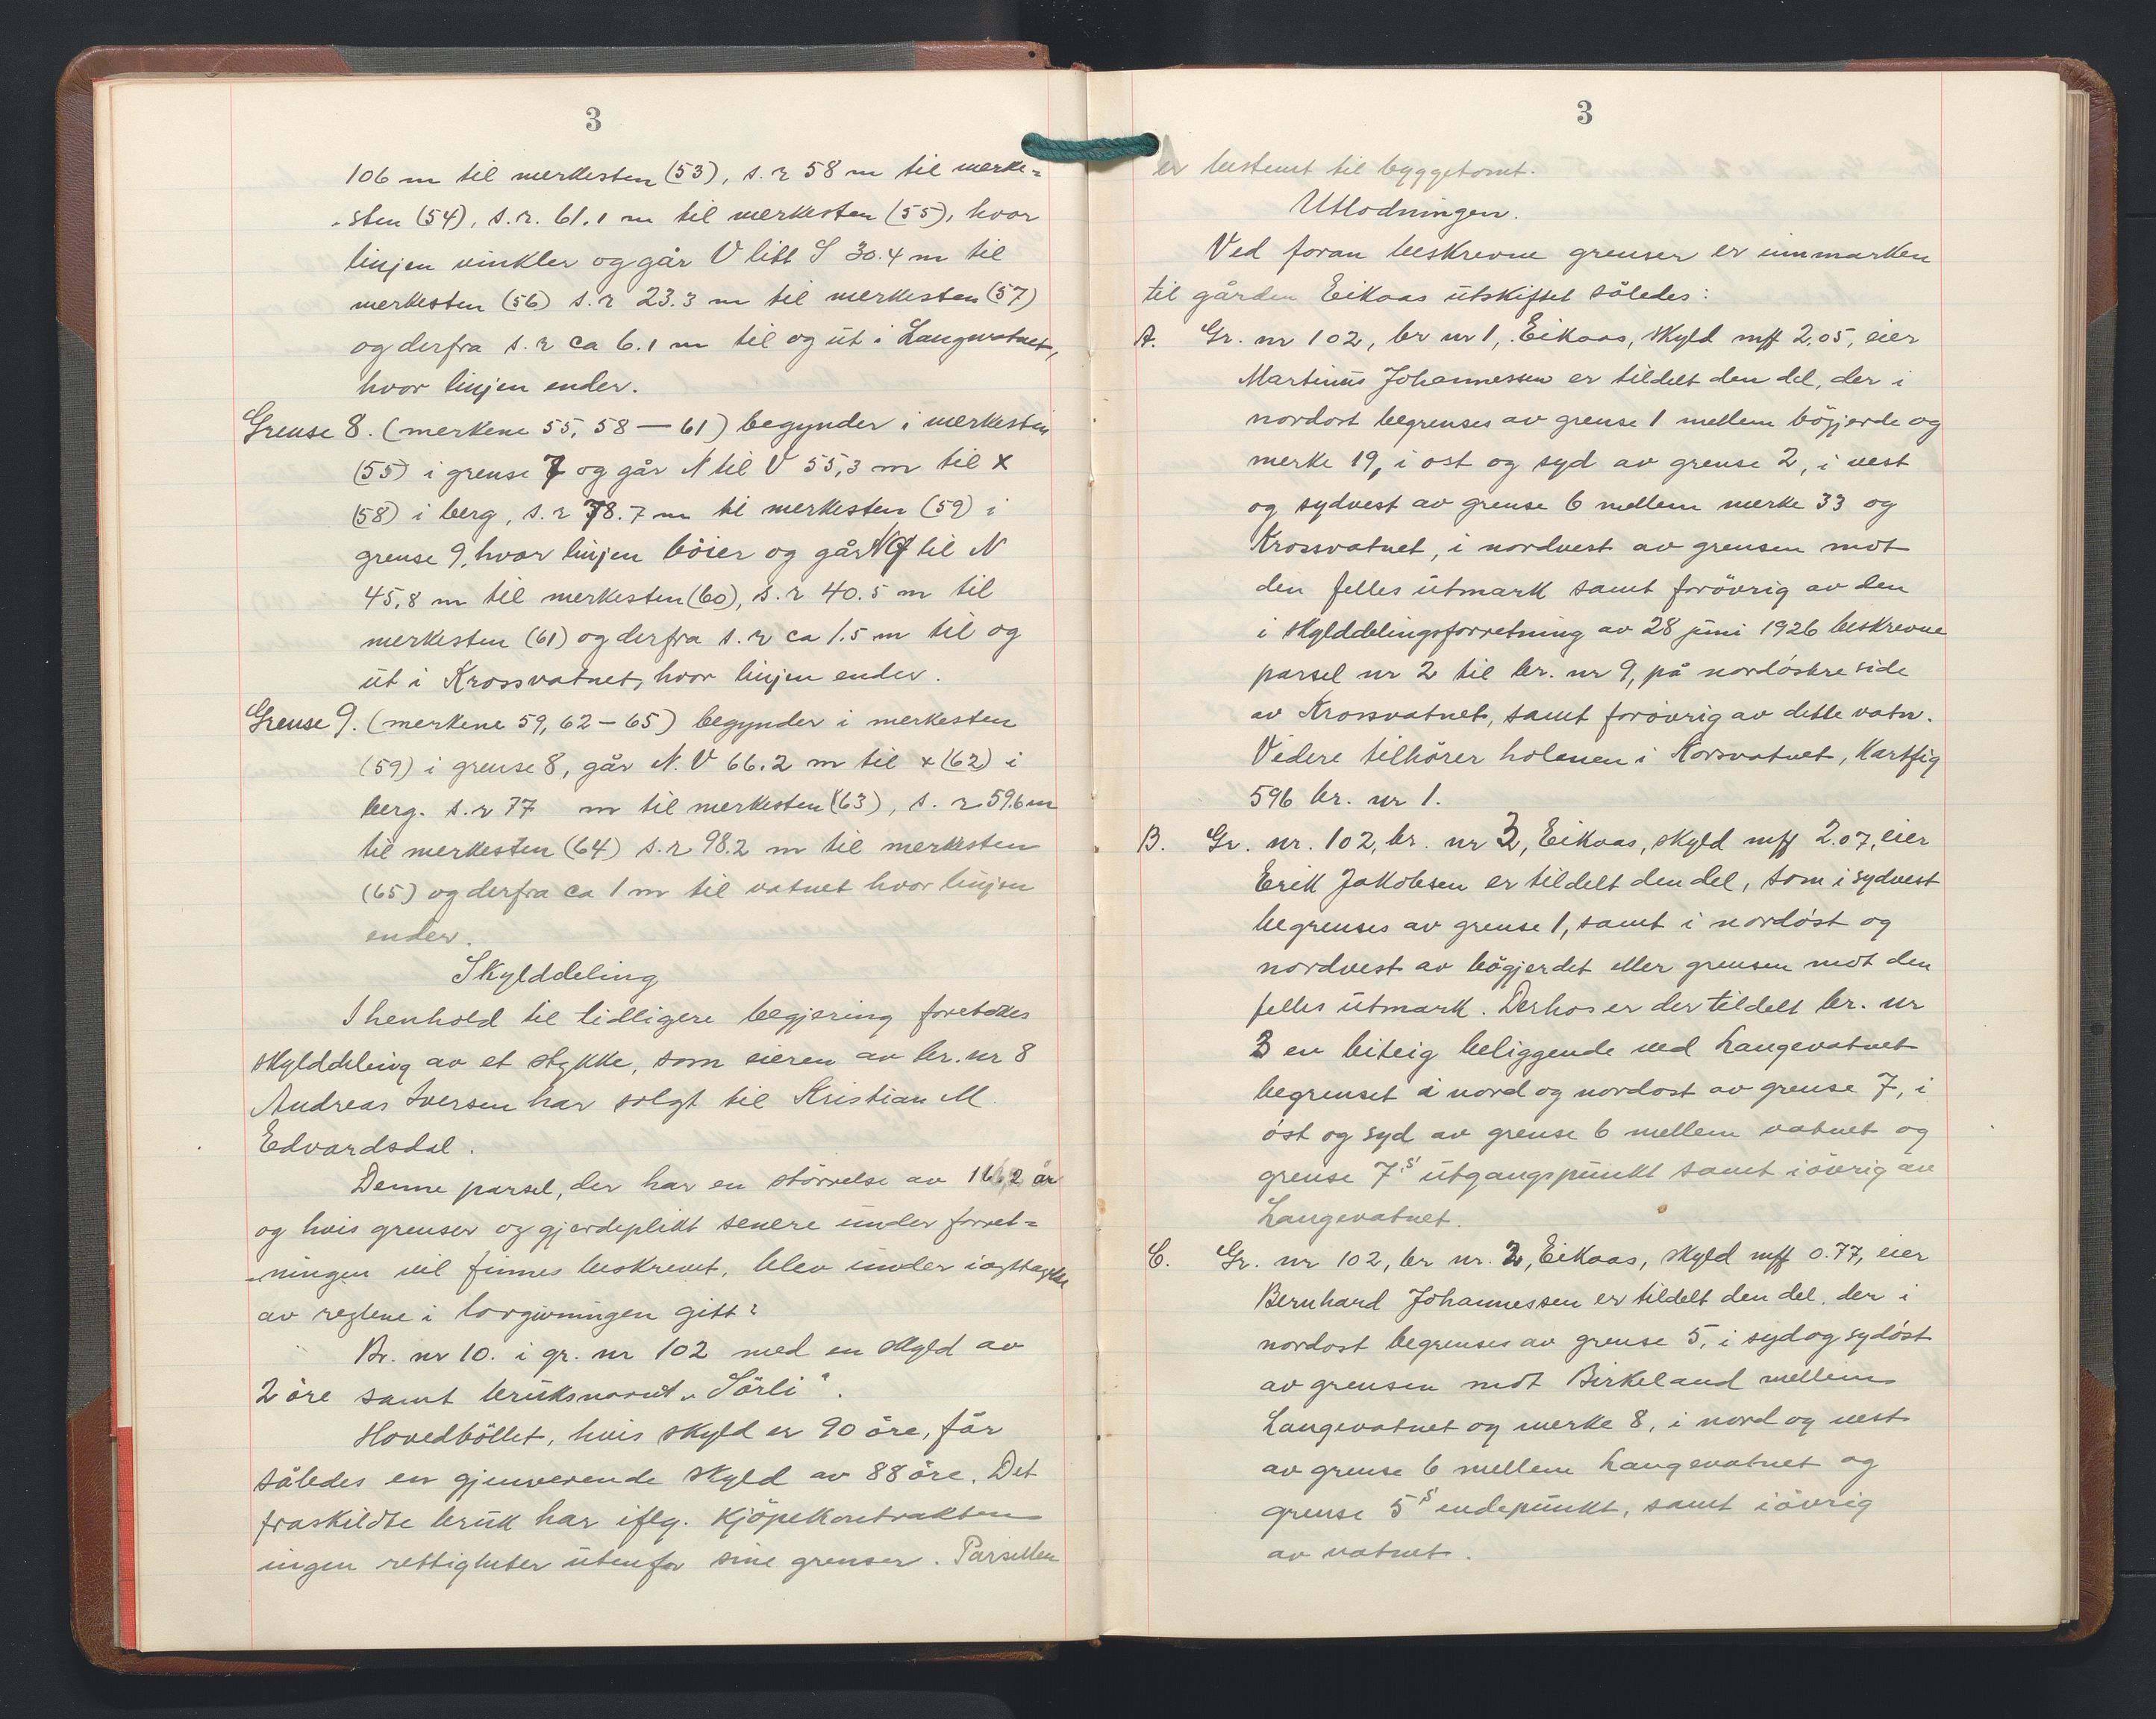 3
106 m til merkesten (53), s. r 58 m til merke=
-sten (54), s. r. 61.1 m til merkesten (55), hvor
linjen vinkler og går V litt S 30.4 m til
merkesten (56) s. r 23.3 m til merkesten (57)
og derfra s. r ca 6.1 m til og ut i Langevatnet,
hvor linjen ender.
Grense 8. (merkene 55, 58 — 61) begynder i merkesten
(55) i grense 7 og går N til V 55,3 m til x
(58) i berg, s. r 78.7 m til merkesten (59) i
grense 9, hvor linjen böier og går til N
45,8 m til merkesten (60), s. r 40.5 m til
merkesten (61) og derfra s. r ca 1.5 m til og
ut i Krossvatnet, hvor linjen ender.
Grense 9. (merkene 59, 62 – 65) begynder i merkesten
(59) i grense 8, går N. V 66.2 m til x (62) i
berg. s. r 77 m til merkesten (63), s. r 59.6 m
til merkesten (64) s. r 98.2 m til merkesten
(65) og derfra ca 1 m til vatnet hvor linjen
ender.
Skylddeling
I henhold til tidligere begjering foretokes
skylddeling av et stykke, som eieren av br. nr 8
Andreas Iversen har solgt til Kristian M.
Edvardsdal.
Denne parsel, der har en störrelse av 16,2 ar
og hvis grenser og gjerdeplikt senere under forret=
-ningen vil finnes beskrevet, blev under iagttagelse
av reglene i lovgivningen gitt:
Br. nr 10. i gr. nr 102 med en skyld av
2 öre samt bruksnavnet „Sörli".
Hovedböllet, hvis skyld er 90 öre, får
således en gjenverende skyld av 88 öre. Det
fraskildte bruk har iflg. kjöpekontrakten
ingen rettigheter utenfor sine grenser. Parsellen
3
er bestemt til byggetomt.
Utlodningen.
Ved foran beskrevne grenser er innmarken
til gården Eikaas utskiftet således:
A. Gr. nr 102, br nr 1, Eikaas, skyld mrk 2.05, eier
Martinus Johannessen er tildelt den del, der i
nordost begrenses av grense 1 mellem bögjerde og
merke 19, i ost og syd av grense 2, i vest
og sydvest av grense 6 mellem merke 33 og
Krossvatnet, i nordvest av grensen mot
den felles utmark samt forövrig av den
i skylddelingsforretning av 28 juni 1926 beskrevne
parsel nr 2 til br. nr 9, på nordöstre side
av Krossvatnet, samt forövrig av dette vatn.
Videre tilhörer holmen i Korsvatnet, Kartfig
596 br. nr 1.
B. Gr. nr. 102, br. nr 3, Eikaas, skyld mrk 2.07, eier
Erik Jakobsen er tildelt den del, som i sydvest
begrenses av grense 1, samt i nordöst og
nordvest av bögjerdet eller grensen mot den
felles utmark. Derhos er der tildelt br. nr
3 en biteig beliggende ved Langevatnet
begrenset i nord og nordost av grense 7, i
öst og syd av grense 6 mellem vatnet og
grense 7's utgangspunkt samt iövrig av
Langevatnet.
C. Gr. nr 102, br nr. 2, Eikaas, skyld mrk 0.77, eier
Bernhard Johannessen er tildelt den del, der i
nordost begrenses av grense 5, i syd og sydöst
av grensen mot Birkeland mellem
Langevatnet og merke 8, i nord og vest
av grense 6 mellem Langevatnet og
grense 5's endepunkt, samt iövrig
av vatnet.